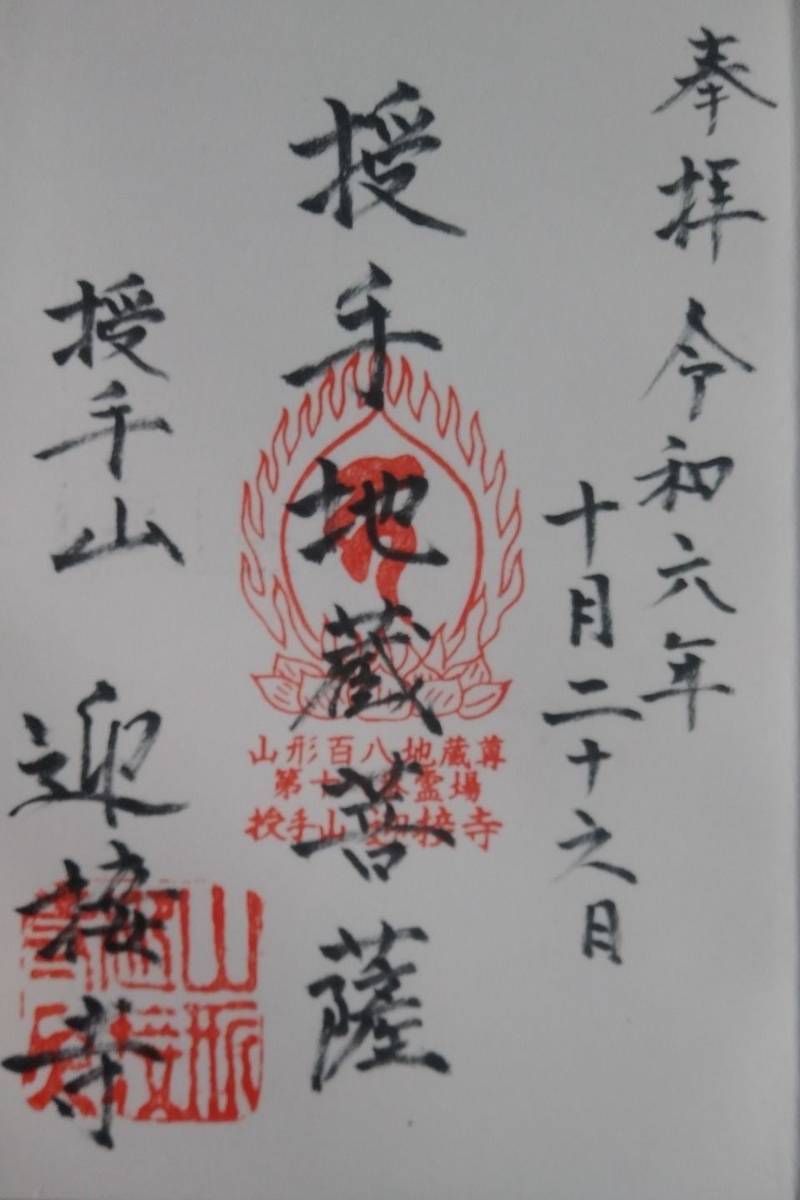 奉拝 令和六年
十月二十六日
授手地蔵菩薩
山形百八地蔵尊
第十 霊場
授手山 迎接寺
授手山 迎接寺
山形
迎接